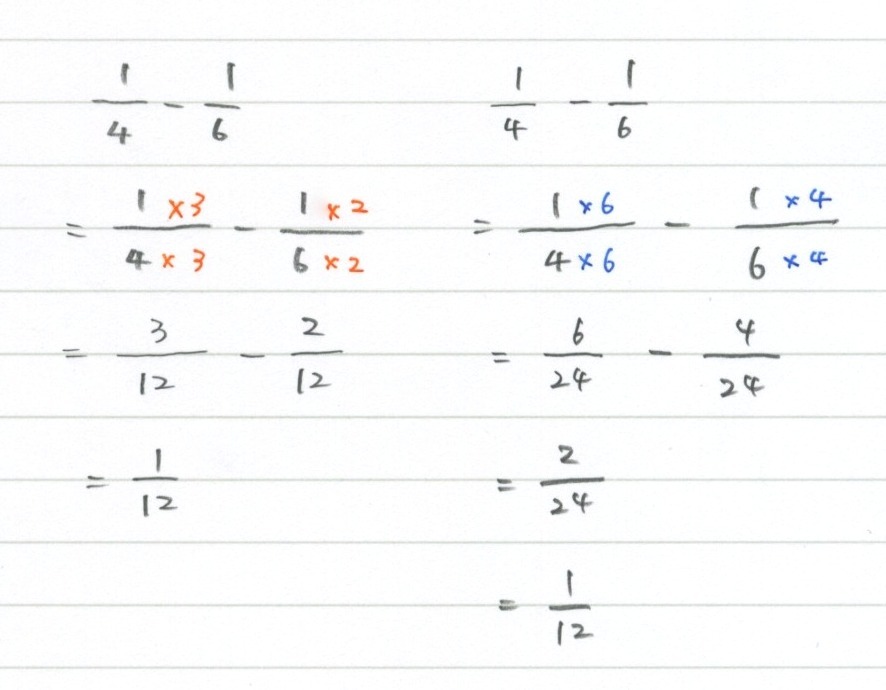 1/4 - 1/6
= 1 × 3 / 4 × 3 - 1 × 2 / 6 × 2
= 3/12 - 2/12
= 1/12
1/4 - 1/6
= 1 × 6 / 4 × 6 - 1 × 4 / 6 × 4
= 6/24 - 4/24
= 2/24
= 1/12